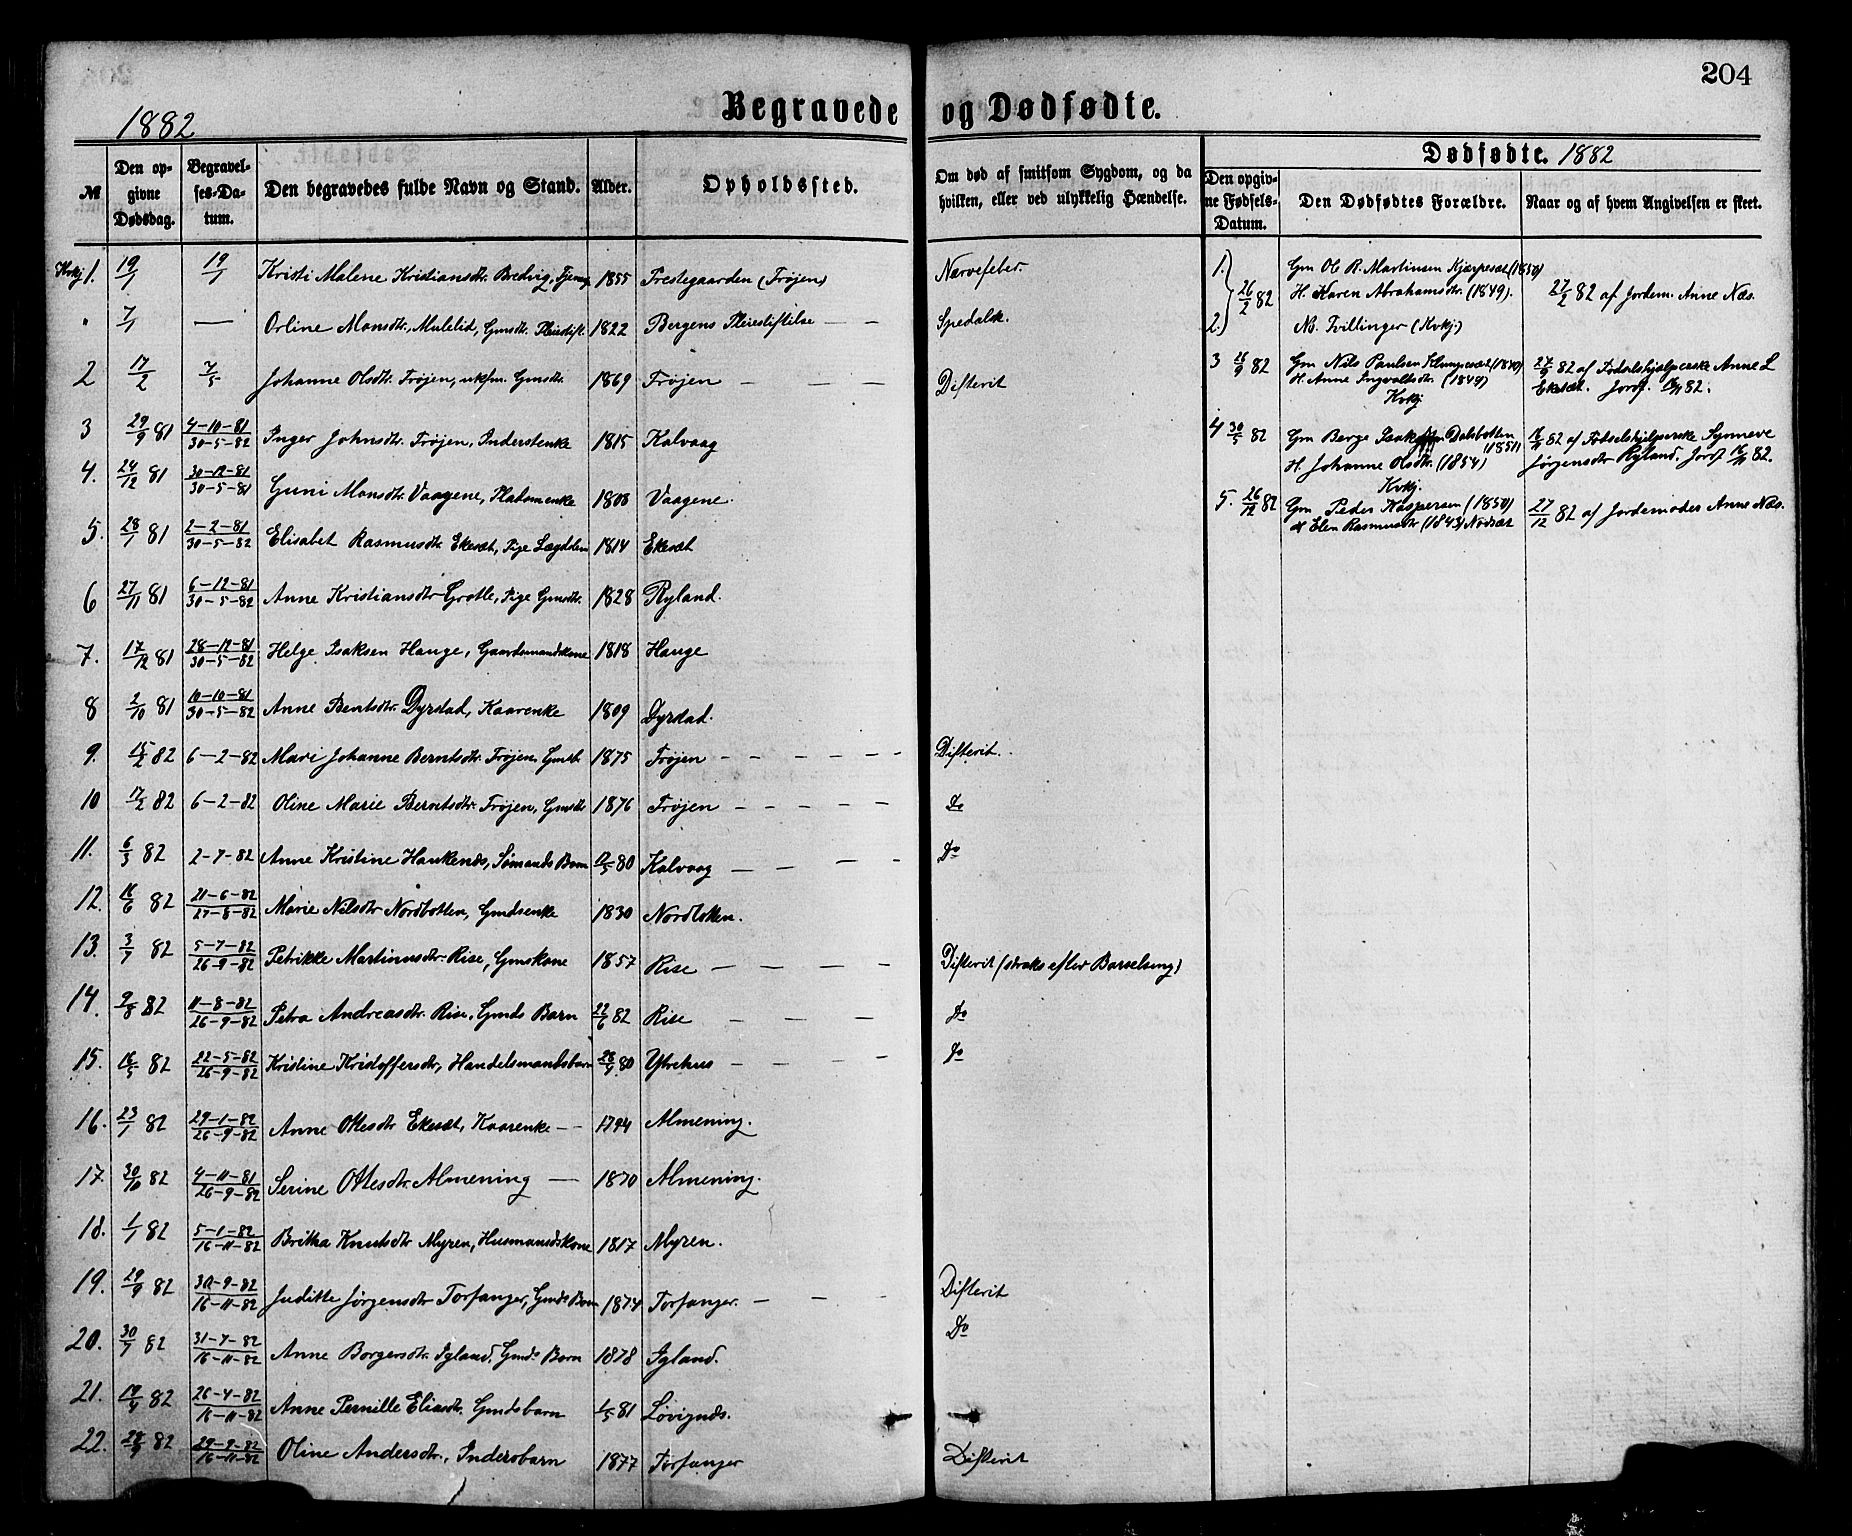 204
Begravede og Dødfødte.
1882
Dødfødte. 1882
№ Den opgivne Dødsdag. Begravelses-Datum. Den begravedes fulde Navn og Stand. Alder. Opholdssted. Om død af smitsom Sygdom, og da hvilken, eller ved ulykkelig Hændelse. Den opgivne Fødsels-Datum. Den Dødfødtes Forældre. Naar og af hvem Angivelsen er skeet.
Kvkj 1. 19/1 19/1 Kristi Malene Kristiansdtr. Bredvig, 1855 Prestegaarden (Frøjen) Nervefeber.
" 7/1 — Orline Monsdtr. Mulelid, Gmsdtr. Pleiestift. 1822 Bergens Pleiestiftelse — — Spedalsk.
2 17/2 7/5 Johanne Olsdtr. Frøjen, ukfm. Gmsdtr. 1869 Frøjen — — — Difterit
3 29/9 81 4-10-81 30-5-82 Inger Johnsdtr. Frøjen, Inderstenke 1815 Kalvaag
4. 24/12 81 30-12-81 30-5-81 Guni Monsdtr. Vaagene, 1808 Vaagene.
5. 28/1 81 2-2-81 30-5-82 Elisabet Rasmusdtr. Ekesæt, Pige Lægdslem 1814 Ekesæt
6 27/11 81 6-12-81 30-5-82 Anne Kristiansdtr Grotle, Pige Gmsdtr. 1828 Ryland.
7. 17/12 81 28-12-81 30-5-82 Helge Isaksen Hauge, Gaardmandskone 1818 Hauge
8 2/10 81 10-10-81 30-5-82 Anne Bentsdtr. Dyrstad, Kaarenke 1809 Dyrstad.
9. 15/2 82 6-2-82 Mari Johanne Berntsdtr. Frøjen, Gmsdt. 1875 Frøjen — — — — — Difterit.
10 17/2 82 6-2-82 Oline Marie Berntsdtr. Frøjen, Gmsdtr 1876 Frøjen — — — — Do
11. 6/3 82 2-7-82 Anne Kristine Haukends, Sømands Barn 12/5 80 Kalvaag — — — — Do
12. 16/6 82 21-6-82 27-8-82 Marie Nilsdtr Nordbotten, Gmdsenke 1830 Nordbotten.
13. 3/7 82 5-7-82 26-9-82 Petrikke Martinusdtr. Rise, Gmskone 1857 Rise — — — — Difterit (straks efter Barselseng)
14. 9/8 82 11-8-82 26-9-82 Petra Andreasdtr. Rise, Gmds Barn 22/6 82 Rise — — — Do
15. 16/5 82 22-5-82 26-9-82 Kristine Kristoffersdtr, Handelsmandsbarn 28/9 80 Ytrehus — — — — do
16. 23/1 82 29-1-82 26-9-82 Anne Ottesdtr Ekesæt, Kaarenke — 1794 Almening.
17. 30/10 82 4-11-81 26-9-82 Serine Ottesdtr. Almening — 1870 Almening.
18. 1/1 82 5-1-82 16-11-82 Britha Knutsdtr Myren, Husmandskone 1817 Myren.
19. 29/9 82 30-9-82 16-11-82 Juditte Jørgensdtr Torfanger, Gmds Barn 1874 Torfanger. — — — Difterit
20. 30/7 82 31-7-82 16-11-82 Anne Borgersdtr. Igland, Gmds Barn 1878 Igland. Do
21. 19/4 82 26-4-82 16-11-82 Anne Pernille Eliasdtr. Gmdsbarn 1/5 81 Løvignds.
22. 28/9 82 29-9-82 16-11-82 Oline Andersdtr., Indersbarn 1877 Torfanger Difterit
1. 2. 26/2 82 Gm Ob R. Martinsen Kjærpesæt (1850)
H. Karen Abrahamsdtr. (1849). 27/2 82 af Jordem. Anne Næs.
Nb. Tvillinger (Kvkj.)
3 26/9 82 Gm Nils Paulsen Klumpesæt (1840) 27/9 82 af Fødselshjælperske Anne L
H. Anne Ingvaltsdtr. (1849) Ekesæt. Jordf. 16/11 82.
Kvkj
4 30/5 82 Gm Berge Isaksen Dalsbotten (1851) 16/11 82 af Fødselshjælperske Synneve
H. Johanne Olsdtr. (1854) Jørgensdtr Ryland. Jordf 16/11 82.
Kvkj.
5. 26/12 82 Gm Peder Kaspersen (1850) 27/12 82 af Jordemoder Anne Næs.
H Elen Rasmusdtr (1843) Nødsæt